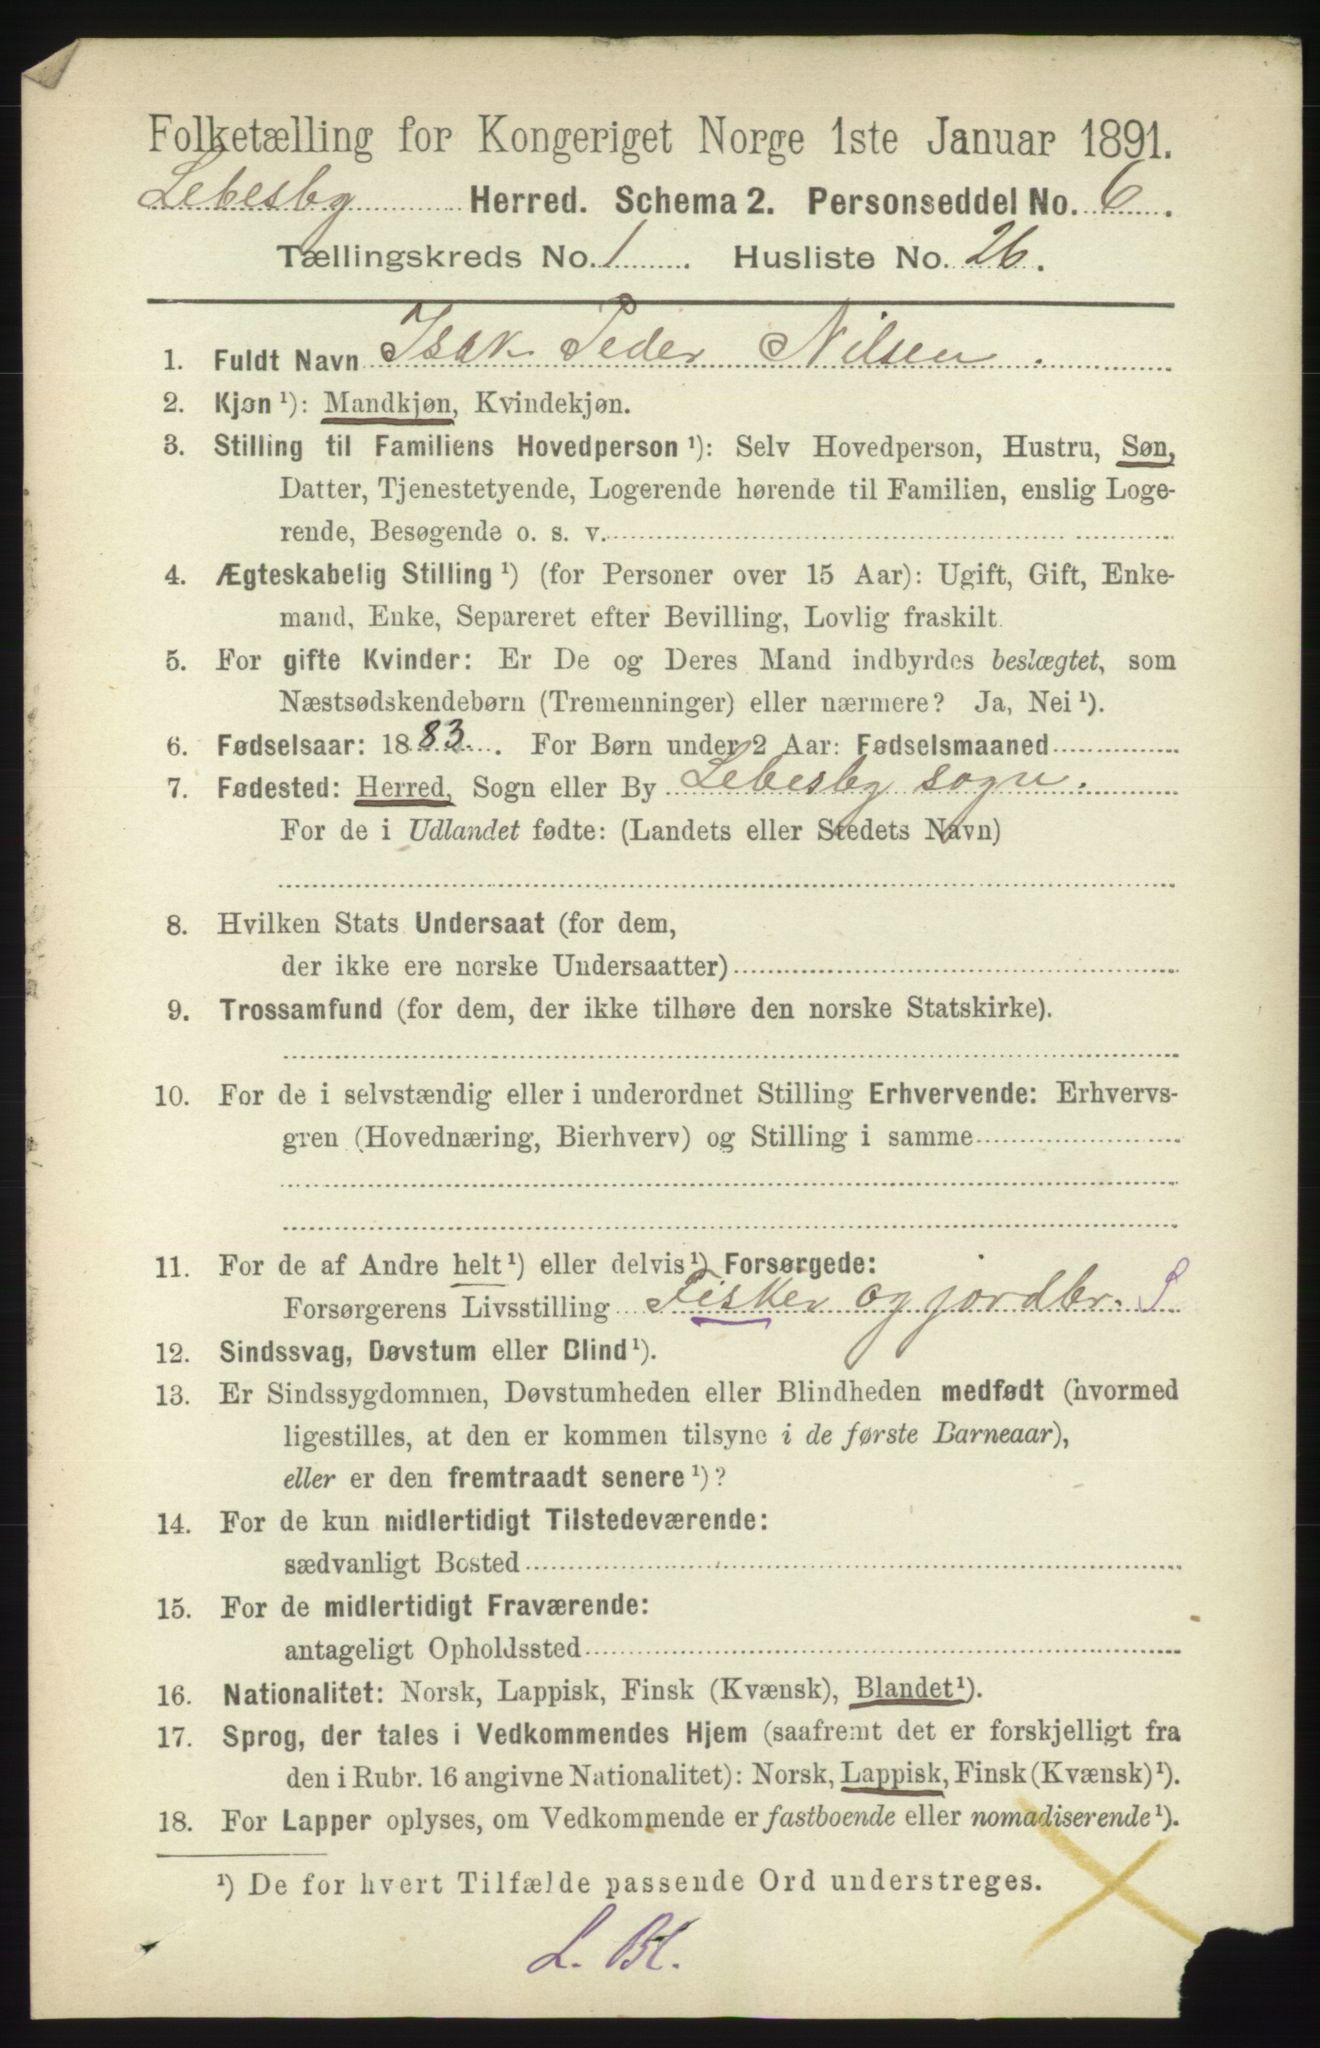 Folketælling for Kongeriget Norge 1ste Januar 1891.
Lebesby Herred. Schema 2. Personseddel No. 6.
Tællingskreds No. 1. Husliste No. 26.
1. Fuldt Navn Isak Peder Nilsen.
2. Kjøn ¹): Mandkjøn, Kvindekjøn.
3. Stilling til Familiens Hovedperson ¹): Selv Hovedperson, Hustru, Søn,
Datter, Tjenestetyende, Logerende hørende til Familien, enslig Loge-
rende, Besøgende o. s. v.
4. Ægteskabelig Stilling ¹) (for Personer over 15 Aar): Ugift, Gift, Enke-
mand, Enke, Separeret efter Bevilling, Lovlig fraskilt.
5. For gifte Kvinder: Er De og Deres Mand indbyrdes beslægtet, som
Næstsødskendebørn (Tremenninger) eller nærmere? Ja, Nei ¹).
6. Fødselsaar: 1883. For Børn under 2 Aar: Fødselsmaaned
7. Fødested: Herred, Sogn eller By Lebesby sogn.
For de i Udlandet fødte: (Landets eller Stedets Navn)
8. Hvilken Stats Undersaat (for dem,
der ikke ere norske Undersaatter)
9. Trossamfund (for dem, der ikke tilhøre den norske Statskirke).
10. For de i selvstændig eller i underordnet Stilling Erhvervende: Erhvervs-
gren (Hovednæring, Bierhverv) og Stilling i samme
11. For de af Andre helt ¹) eller delvis ¹) Forsørgede:
Forsørgerens Livsstilling Fisker og jordbr. S
12. Sindssvag, Døvstum eller Blind ¹).
13. Er Sindssygdommen, Døvstumheden eller Blindheden medfødt (hvormed
ligestilles, at den er kommen tilsyne i de første Barneaar),
eller er den fremtraadt senere ¹)?
14. For de kun midlertidigt Tilstedeværende:
sædvanligt Bosted
15. For de midlertidigt Fraværende:
antageligt Opholdssted
16. Nationalitet: Norsk, Lappisk, Finsk (Kvænsk), Blandet ¹).
17. Sprog, der tales i Vedkommendes Hjem (saafremt det er forskjelligt fra
den i Rubr. 16 angivne Nationalitet): Norsk, Lappisk, Finsk (Kvænsk) ¹).
18. For Lapper oplyses, om Vedkommende er fastboende eller nomadiserende ¹).
¹) De for hvert Tilfælde passende Ord understreges.
L. Bl.